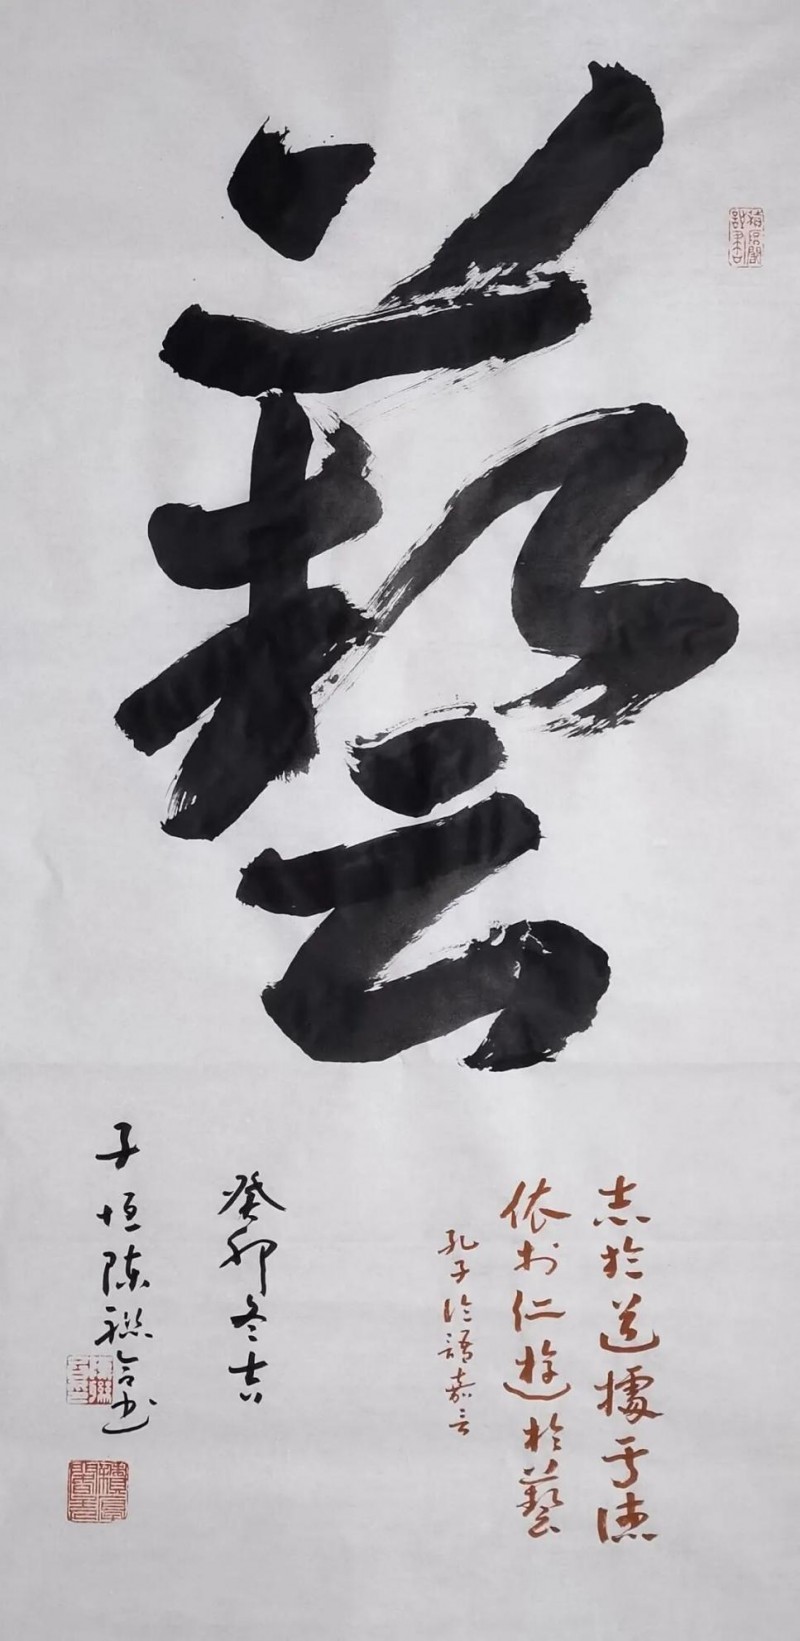 藝
志於道據于德
依於仁遊於藝
孔子論語嘉言
癸卯冬吉
子恒陳聯合书